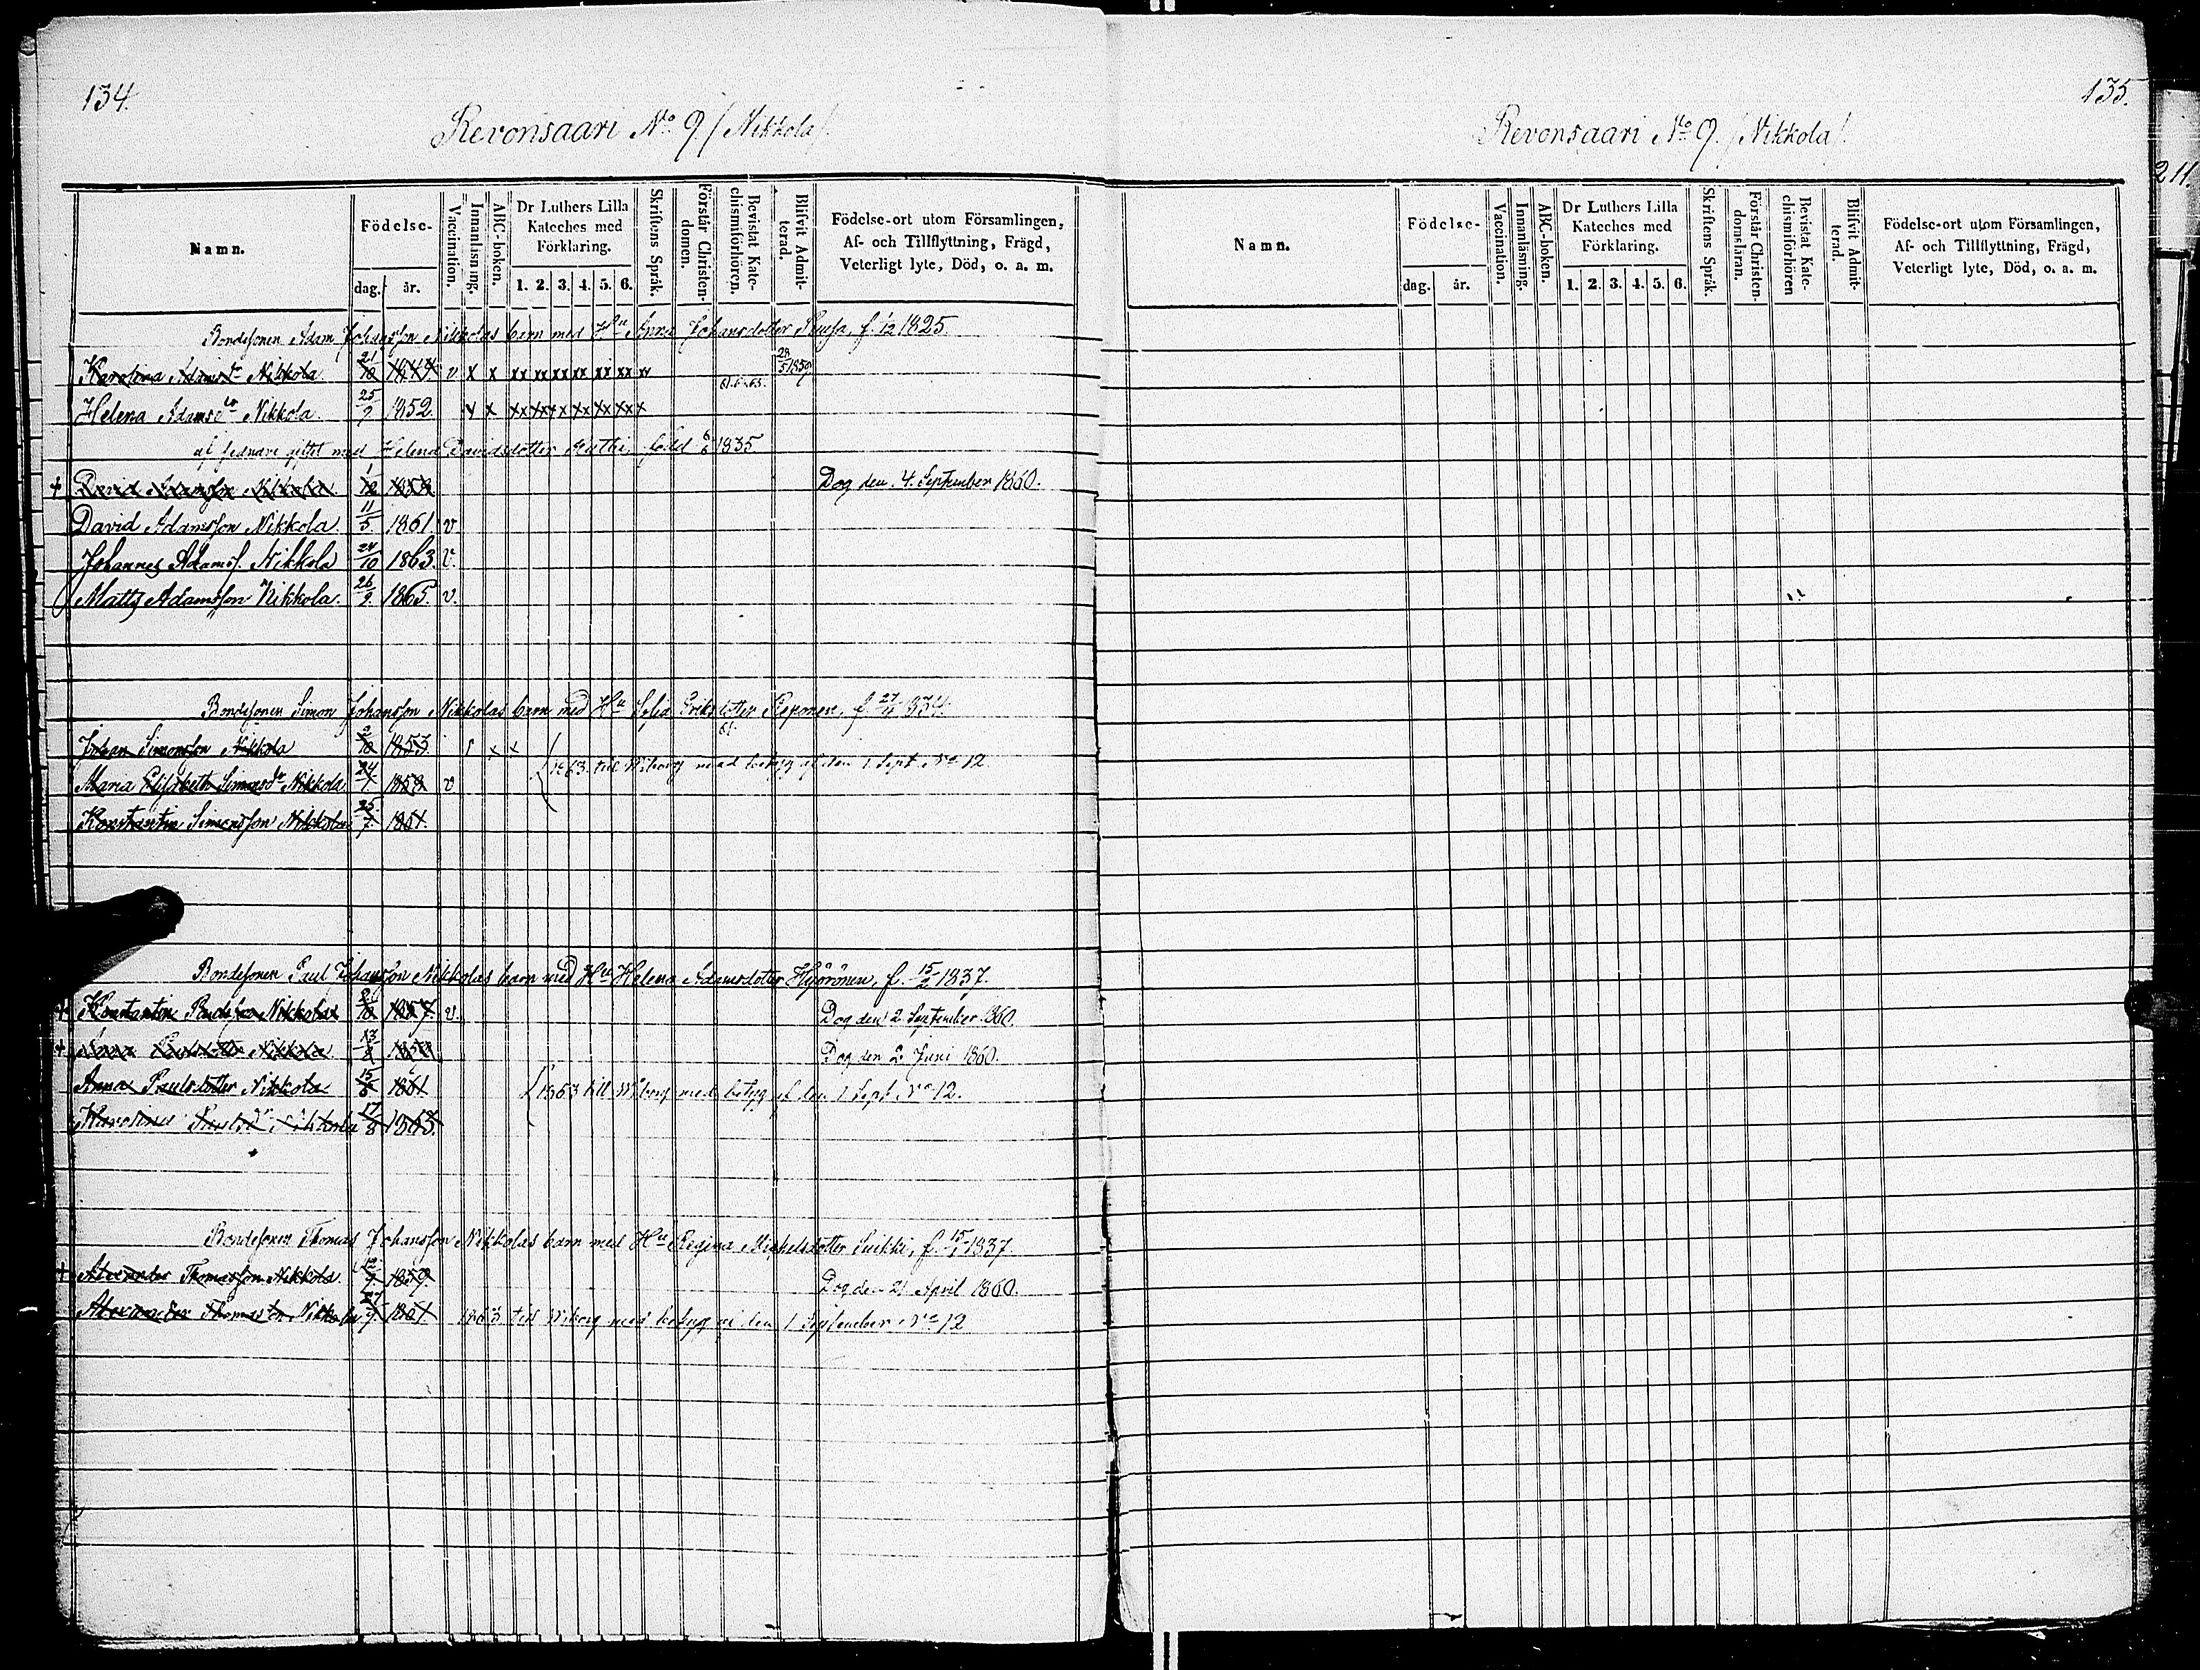 134.
Revonsaari No 9. /Nikkola/.
Namn.
Födelse-
dag.
år.
Vaccination.
Innanläsning.
ABC-boken.
Dr Luthers Lilla
Kateches med
Förklaring.
1. 2. 3. 4. 5. 6.
Skriftens Språk.
Förstår Christen-
domen.
Bevistat Kate-
chismiförhören.
Blifvit Admit-
terad.
Födelse-ort utom Församlingen,
Af- och Tillflyttning, Frägd,
Veterligt lyte, Död, o. a. m.
Bondesonen Adam Johansson Nikkolas barn med Hu Anna Johansdotter f. 1/12 1825.
Karolina Adamsdr Nikkola 21/10 1847 v x x xx xx xx xx xx xx xx 61. 63. 28/5 1859
Helena Adamsdr Nikkola. 25/7 1852. x x xx xx xx xx xx xx x
af sednare giftet med Helena Davidsdotter född 1835.
+ David Adamsson Nikkola 1/12 Dog den 4. September 1860.
David Adamsson Nikkola. 11/5 1861 v
Johannes Adamss. Nikkola 24/10 1863. v.
Matts Adamsson Nikkola. 26/9 1865. v.
Bondesonen Simon Johansson Nikkolas barn med Hu Sofia Eriksdotter f. 27/11 1834.
Johan Simonsson Nikkola 2/10 1853. x x 61.
1863 till Wiborg med betyg af den 1 Sept. No 12
Maria Elisabeth Simonsdr Nikkola 24/7 1858 v
Konstantin Simonsson Nikkola 25/7 1861.
Bondesonen Paul Johansson Nikkolas barn med Hu Helena Adamsdotter Hyörönen, f. 15/2 1837.
+ Konstantin Paulsson Nikkola 1857. v. Dog den 2 September 1860.
+ Anna Paulsdotter Nikkola 13/8 Dog den 2 Juni 1860.
Anna Paulsdotter Nikkola 15/5 1861 1863 till Wiborg med betyg af den 1 Sept No 12.
Karolina Paulsdr Nikkola 17/8 1863.
Bondesonen Thomas Johansson Nikkolas barn med Hu Regina Michelsdotter Suikki, f. 15/1 1837.
+ Alexander Thomasson Nikkola. 12/9 1859. Dog den 21 April 1860.
Alexander Thomasson Nikkola 27/7 1861. 1863 till Wiborg med betyg af den 1 September No 12
135.
Revonsaari No 9. /Nikkola/.
211.
Namn.
Födelse-
dag.
år.
Vaccination.
Innanläsning.
ABC-boken.
Dr Luthers Lilla
Kateches med
Förklaring.
1. 2. 3. 4. 5. 6.
Skriftens Språk.
Förstår Christen-
domsläran.
Bevistat Kate-
chismiförhören
Blifvit Admit-
terad.
Födelse-ort utom Församlingen,
Af- och Tillflyttning, Frägd,
Veterligt lyte, Död, o. a. m.